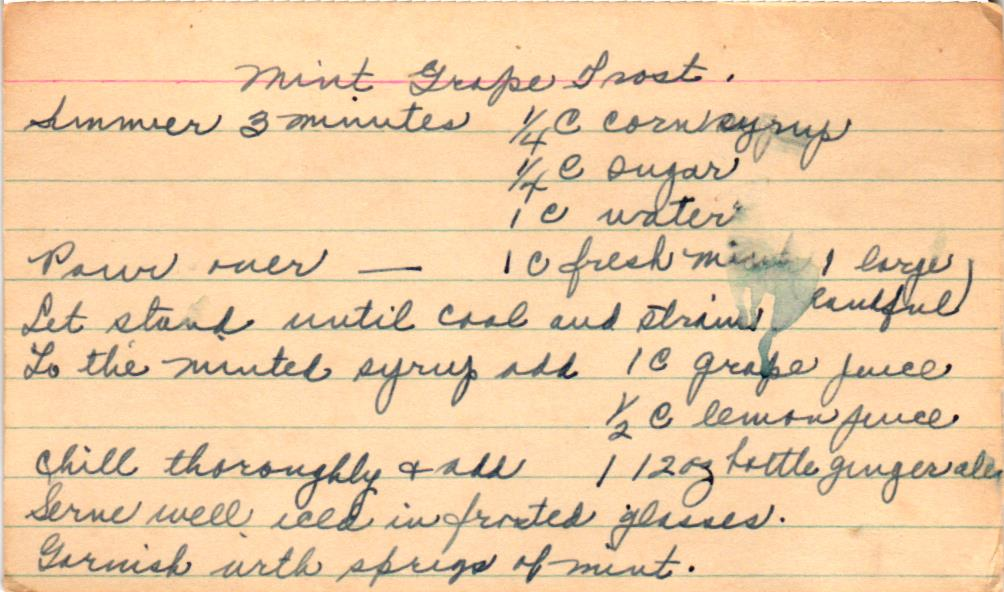 Mint Grape Frost.
Simmer 3 minutes 1/4 C corn syrup
1/4 C sugar
1 C water
Pour over — 1 C fresh mint 1 large
handful)
Let stand until cool and strain.
To the minted syrup add 1 C grape juice
1/2 C lemon juice
Chill thoroughly & add 1 12oz bottle ginger ale
Serve well iced in frosted glasses.
Garnish with sprigs of mint.